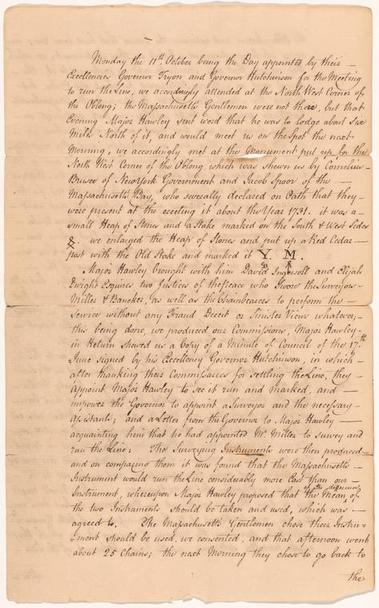 Monday the 11th October being the Day appointed by their
Excellencies Governor Tryon and Governor Hutchinson for the Meeting
to run the Line, we accordingly attended at the North West Corner of
the Oblong; the Massachusetts Gentlemen were not there, but that
Evening Major Hawley sent word that he was to lodge about Six
Miles North of it, and would meet us on the Spot the next
Morning, we accordingly met at the Monument put up for the
North West Corner of the Oblong which was shewn us by Cornelius
Busee of New York Government and Jacob Spoor of the
Massachusetts Bay, who severally declared on Oath that they
were present at the erecting it about the Year 1731. it was a
small Heap of Stones and a Stake marked on the South & West Sides
&. we enlarged the Heap of Stones and put up a Red Cedar
post with the Old Stake and marked it Y. M.
Major Hawley brought with him David Ingersoll and Elijah
Dwight Esquires two Justices of the Peace who swore the Surveyors
Miller & Bancker, as well as the Chainbearers to perform the
Service without any Fraud Deceit or Sinister View whatever,
this being done, we produced our Commissions, Major Hawley
in Return shewed us a Copy of a Minute of Council of the 17th
June signed by his Excellency Governor Hutchinson, in which
after thanking their Commissaries for settling the Line, they
appoint Major Hawley to see it run and marked, and
impower the Governor to appoint a Surveyor and the necessary
assistants; and a Letter from the Governor to Major Hawley
acquainting him that he had appointed Mr. Miller to survey and
run the Line: The Surveying Instruments were then produced
and on comparing them it was found that the Massachusetts
Instrument would run the Line considerably more East than our
Instrument, whereupon Major Hawley proposed that the Mean of
the two Instruments should be taken and used, which was
agreed to. The Massachusetts Gentlemen chose their Instru-
ment should be used, we consented, and that afternoon went
about 25 Chains; the next Morning they chose to go back to
the